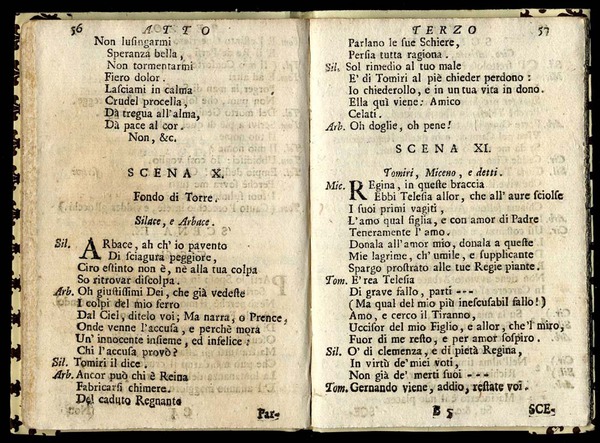 56 ATTO
Non lusingarmi
Speranza bella,
Non tormentarmi
Fiero dolor.
Lasciami in calma
Crudel procella,
Dà tregua all'alma,
Dà pace al cor.
Non, &c.
SCENA X.
Fondo di Torre.
Silace, e Arbace.
Sil. ARbace, ah ch' io pavento
Di sciagura peggiore,
Ciro estinto non è, nè alla tua colpa
So ritrovar discolpa.
Arb. Oh giustissimi Dei, che già vedeste
I colpi del mio ferro
Dal Ciel, ditelo voi; Ma narra, o Prence,
Onde venne l'accusa, e perchè mora
Un' innocente insieme, ed infelice:
Chi l'accusa provò?
Sil. Tomiri il dice.
Arb. Ancor può chi è Reina
Fabricarsi chimere.
Del caduto Regnante
Par-
TERZO 57
Parlano le sue Schiere,
Persia tutta ragiona.
Sil. Sol rimedio al tuo male
E' di Tomiri al piè chieder perdono:
Io chiederollo, e in un tua vita in dono.
Ella quì viene: Amico
Celati.
Arb. Oh doglie, oh pene!
SCENA XI.
Tomiri, Miceno, e detti.
Mic. REgina, in queste braccia
Ebbi Telesia allor, che all' aure sciolse
I suoi primi vagiti,
L'amo qual figlia, e con amor di Padre
Teneramente l' amo.
Donala all'amor mio, donala a queste
Mie lagrime, ch' umile, e supplicante
Spargo prostrato alle tue Regie piante.
Tom. E' rea Telesia
Di grave fallo, parti ---
(Ma qual del mio più inescusabil fallo!)
Amo, e cerco il Tiranno,
Uccisor del mio Figlio, e allor, che'l miro,
Fuor di me resto, e per amor sospiro.
Sil. O' di clemenza, e di pietà Regina,
In virtù de' miei voti,
Non già de' merti suoi ---
Tom. Gernando viene, addio, restate voi.
B 5 SCE-